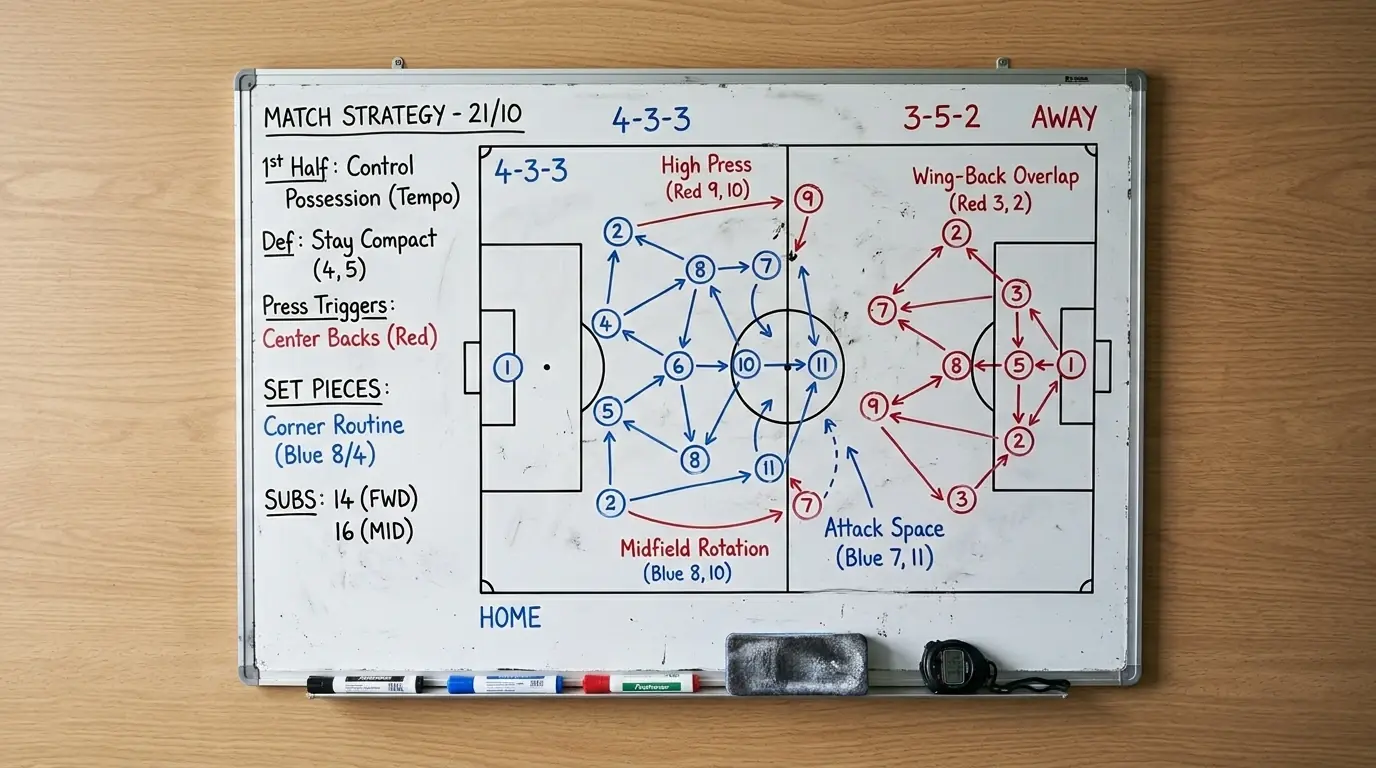 MATCH STRATEGY - 21/10
1st Half: Control
Possession (Tempo)
Def: Stay Compact
(4, 5)
Press Triggers:
Center Backs (Red)
SET PIECES:
Corner Routine
(Blue 8/4)
SUBS: 14 (FWD)
16 (MID)
4-3-3
3-5-2 AWAY
4-3-3
High Press
(Red 9, 10)
Wing-Back Overlap
(Red 3, 2)
9
2
2
8
7
3
7
4
1
6
10
11
8
5
1
5
9
2
8
11
2
7
3
Midfield Rotation
(Blue 8, 10)
Attack Space
(Blue 7, 11)
HOME